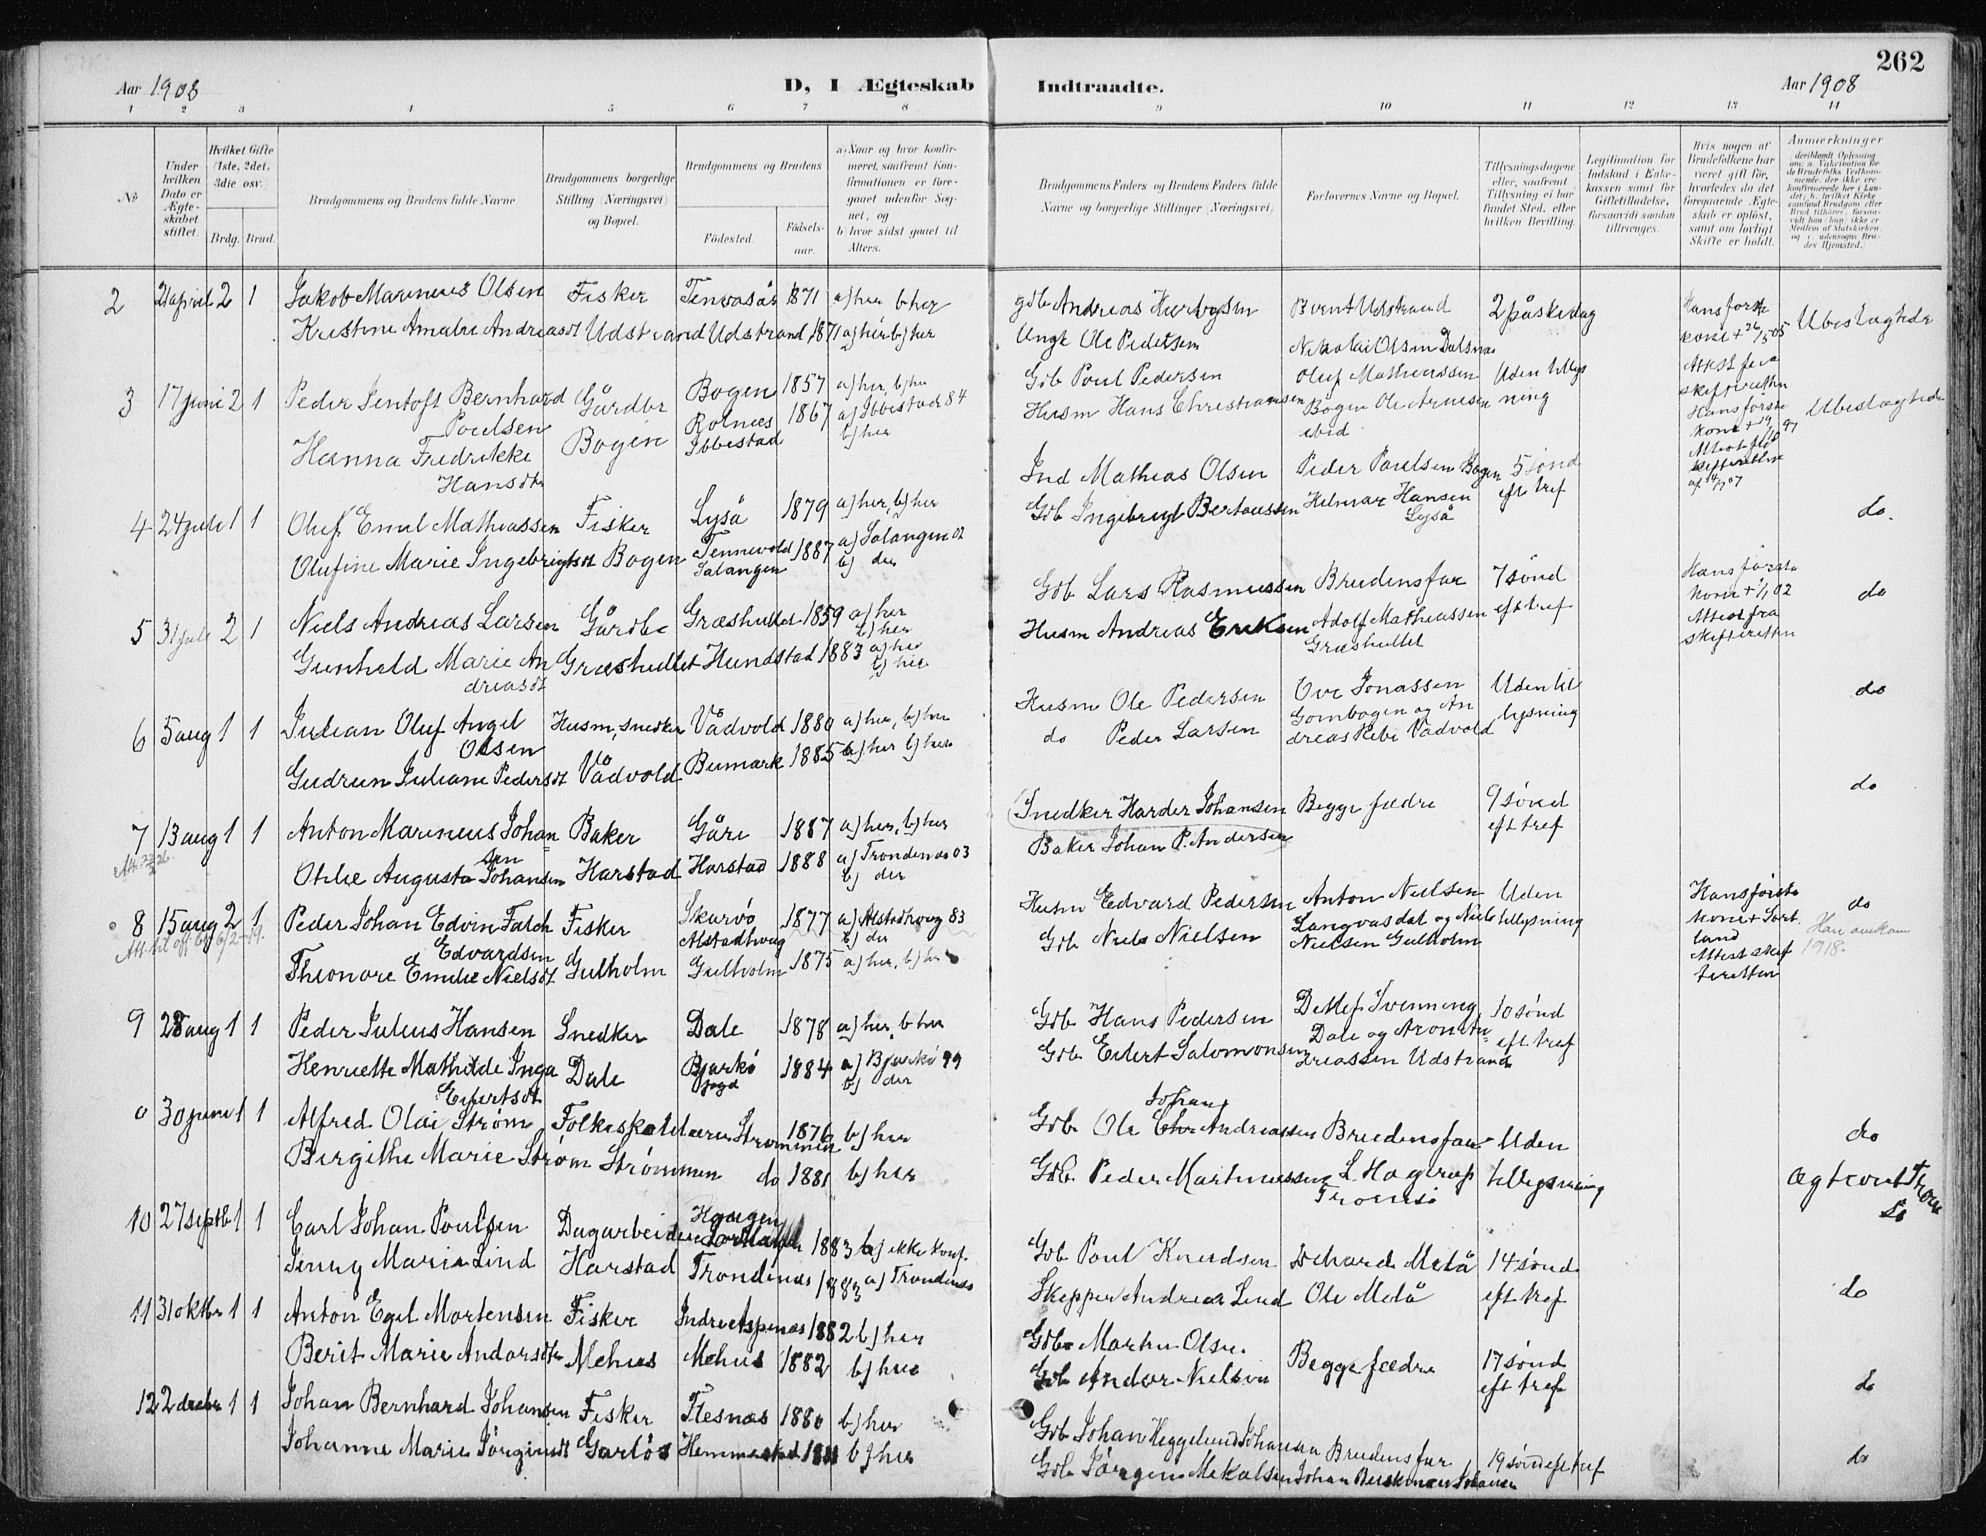 262
Aar 1908
D, I Ægteskab Indtraadte.
Aar 1908
1 2 3 4 5 6 7 8 9 10 11 12 13 14
No
Under hvilken Dato er Ægteskabet stiftet.
Hvilket Gifte (1ste, 2det, 3die osv.)
Brdg. Brud.
Brudgommens og Brudens fulde Navne
Brudgommens borgerlige Stilling (Næringsvei) og Bopæl.
Brudgommens og Brudens
Fødested.
Fødselsaar.
a) Naar og hvor konfirmeret, saafremt Konfirmationen er foregaaet udenfor Sognet, og
b) hvor sidst gaaet til Alters.
Brudgommens Faders og Brudens Faders fulde Navne og borgerlige Stillinger (Næringsvei).
Forlovernes Navne og Bopæl.
Tillysningsdagene eller, saafremt Tillysning ei har fundet Sted, efter hvilken Bevilling.
Legitimation for Indskud i Enkekassen samt for Giftetilladelse, forsaavidt saadan tiltrænges.
Hvis nogen af Brudefolkene har været gift før, hvorledes da det foregaaende Ægteskab er opløst, samt om lovligt Skifte er holdt.
Anmærkninger
2 21 april 2 1 Jakob Marineus Olsen Fisker Tenvasås 1871 a) her b) her
Kristine Amalie Andreasdt Udstrand Udstrand 1871 a) her b) her
gdb Andreas Bernt Udstrand 2 påskedag
Ungk Ole Pedersen Nikolai Olsen
Hans første kone + 26/5 05
Attest fra skifteretten
Ubeslægtede
3 17 juni 2 1 Peder Jentoft Bernhard Poulsen Gårdbr Bogen 1857 a) her, b) her
Hanna Fredrikke Hansdtr Bogen Rolnæs Ibbestad 1867 a) Ibbestad 84 b) her
Gdb Poul Pedersen Oluf Mathiassen Uden tillysning
Husm Hans Christiansen Bogen Ole Arnesen ibid
Hans første kone +
Ubeslægtede
4 24 juli 1 1 Oluf Emil Mathiassen Fisker Lyså 1879 a) her, b) her
Olufine Marie Ingebrigtsdt Bogen Tennevold Salangen 1887 a) Salangen 02 b) der
Ind Mathias Olsen Peder Poulsen Bogen 5 sønd
Gdb Ingebrigt Bertheussen Hilmar Hansen Lyså eft tref
do.
5 31 juli 2 1 Niels Andreas Larsen Gårdb. Græshullet 1859 a) her b) her
Gunhild Marie Andreasdt Græshullet Hundstad 1883 a) her b) her
Gdb Lars Rasmussen Brudens far 7 sønd
Husm Andreas Eriksen Adolf Mathiassen Græshullet eft tref
Hans første kone + 1/1 02
Attest fra skifteretten
do
6 5 aug 1 1 Julian Oluf Angel Olsen Husm, snedker Vådvold 1880 a) her, b) her
Gudrun Juliane Pedersdt Vådvold Bumark 1885 a) her b) her
Husm Ole Pedersen Ove Jonassen Uden til
do Peder Larsen Gombogen og Andreas Vådvold lysning
do
7 13 aug 1 1 Anton Marineus Johansen Baker Gåre 1887 a) her, b) her
Othlie Augusta Johansen Harstad Harstad 1888 a) Trondenæs 03 b) der
Snedker Harder Johansen Begge fædre 9 sønd
Baker Johan P. Andersen eft tref
do
8 15 aug 2 1 Peder Johan Edvin Falch Edvardsen Fisker Skarvø Alstadhoug 1877 a) Alstadhoug 83 b) der
Theonore Emilie Nielsdt Gulholm Gulholm 1875 a) her, b) her
Husm Edvard Pedersen Anton Nielsen Uden
Gdb Niels Nielsen Langvasdal og Niels Nielsen Gulholm tillysning
Hans første kone + Sortland
Attest skifteretten
do
Han omkom 1918.
9 28 aug 1 1 Peder Julius Hansen Snedker Dale 1878 a) her, b) her
Henriette Mathilde Inga Eilertsdt Dale Bjarkø 1884 a) Bjarkø 99 b) der
Gdb Hans Pedersen Detlef Svenning 10 sønd
Gdb Eilert Salomonsen Dale og Aron Andreassen Udstrand eft tref
0 30 juni 1 1 Alfred Olai Strøm Folkeskolelærer Strømmen 1876 b) her
Birgithe Marie Strøm Strømmen do 1881 b) her
Gdb. Ole Johan Andreassen Brudens far Uden
Gdb. Peder Martinussen L Hagerup Tromsø tillysning
do
10 27 septb 1 1 Carl Johan Poulsen Dagarbeider Haugen 1883 b) ikke konf.
Jenny Marie Lind Harstad Trondenæs 1883 a) Trondenæs
Gdb Poul Knudsen Melå 14 sønd.
Skepper Andreas Lind Ole Melå eft tref
do
11 31 oktbr 1 1 Anton Egil Mortensen Fisker Indre Aspenæs 1882 b) her
Berit Marie Andorsdtr Mehus Mehus 1882 b) her
Gdb. Martin Olsen Begge fædre 17 sønd
Gdb Andor Nielsen eft tref
do
12 2 decbr 1 1 Johan Bernhard Johansen Fisker Flesnæs 1880 b) her
Johanne Marie Jørgensdt Garlås Hemmestad b) her
Gdb Johan Heggelund Johansen Brudens far 19 sønd eft tref
Gdb Jørgen Mikalsen
do